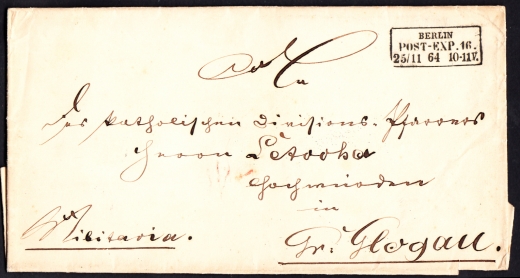 BERLIN
POST-EXP. 16.
25/11 64 10-11V.
An
des katholischen Divisions-Pfarrers
Herrn
Hochwürden
in
Gr. Glogau.
Militaria.